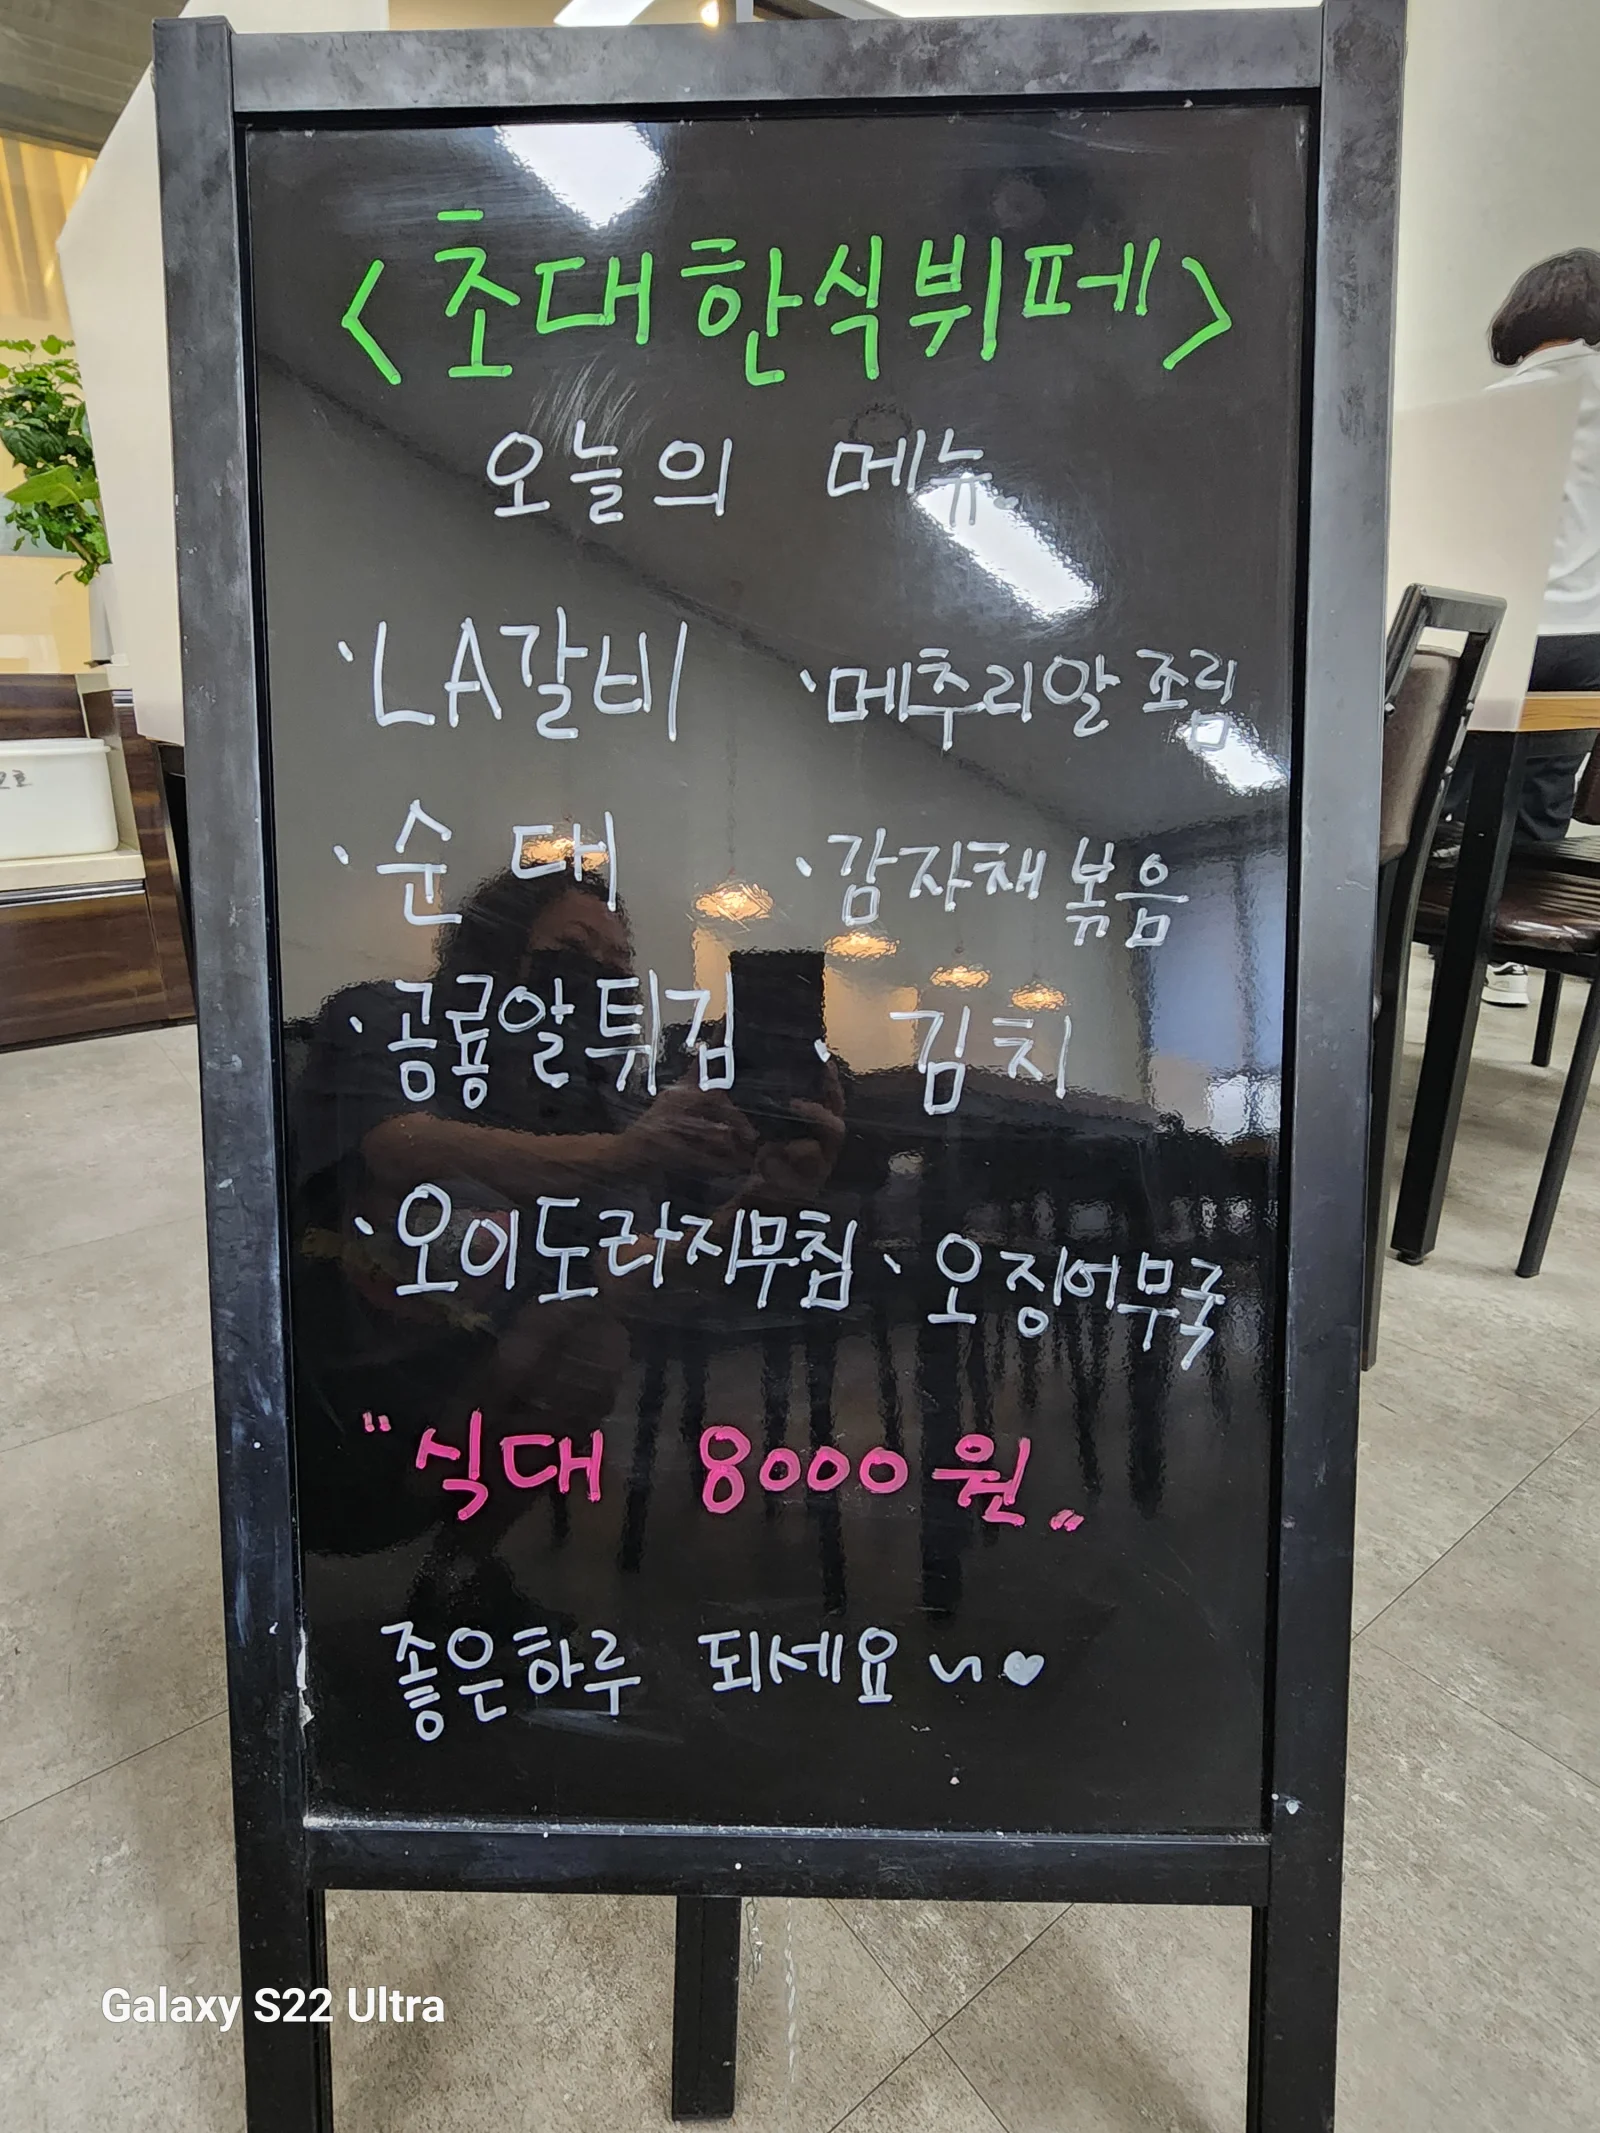 <초대한식뷔페>
오늘의 메뉴
·LA갈비 ·메추리알조림
·순대 ·감자채볶음
·공룡알튀김 · 김치
·오이도라지무침 ·오징어무국
"식대 8000원"
좋은하루 되세요~♥
Galaxy S22 Ultra